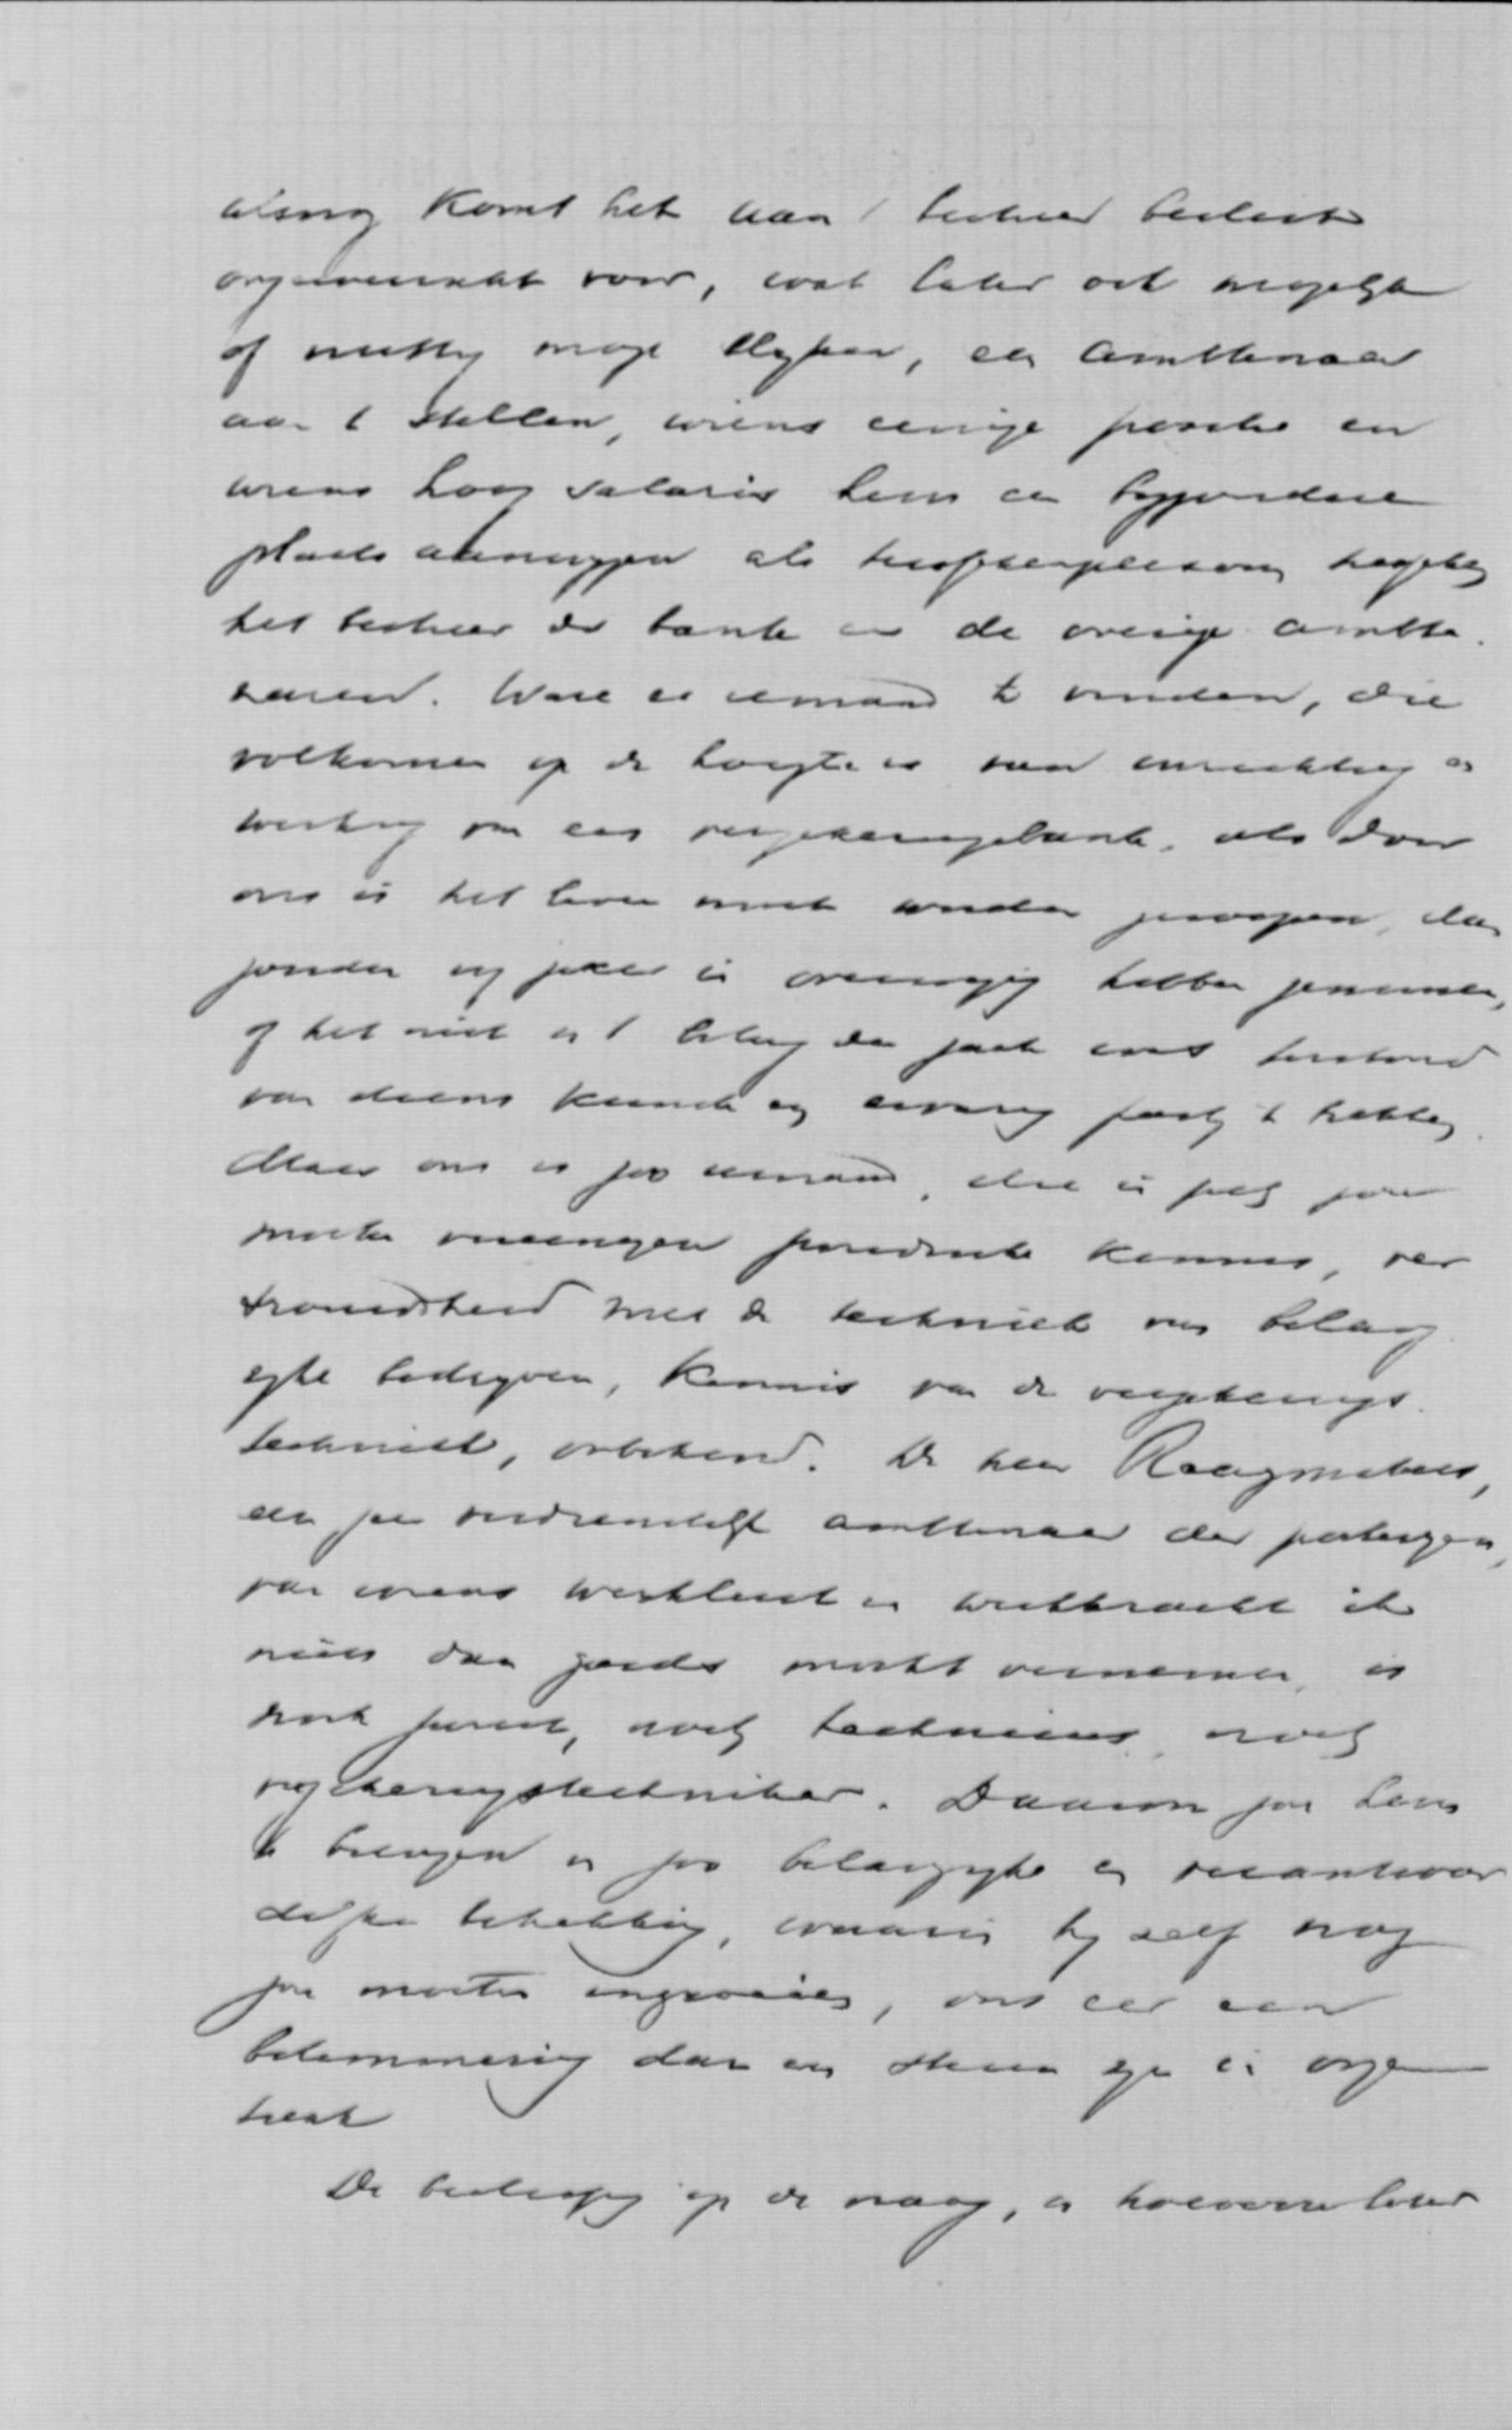 komt het aan 't bestuur beslist
ongewenscht voor, wat later ook mogelijk
of nuttig moge blijken, een ambtenaar
aan t stellen, wiens eenige positie en
wiens hoog salaris hem een byzondere
plaats aanwyzen als tusschenpersoon tusschen
het bestuur der bank en de overige ambte-
naren. Ware er iemand te vinden, die
volkomen op de hoogte is van inrichting en
werking van een verzekeringsbank, als door
ons in het leven moet worden geroepen, dan
zouden wy zeker in overweging hebben genomen,
of het niet in 't belang der zaak was
van diens kunde en ervaring party t trekken.
Maar ons is zoo iemand, die in zich zou
moeten vereenigen juridische kennis, ver-
trouwdheid met de techniek van belang-
ryke bedryven, kennis van de verzekerings-
techniek, onbekend. De heer Raaymakers,
een zeer verdienstelijk ambtenaar der
van wiens werklust en werkkracht ik
niets dan goeds mocht vernemen, is
noch jurist, noch technicus, noch
verzekeringstechniker. Daarom zou hem
te brengen in zoo belangryke en verantwoor-
delyke betrekking, waarin hy zelf nog
zou moeten ingroeien, ons eer een
belemmering dan een steun zyn in onze
taak
De beslissing op de vraag, in hoeverre later